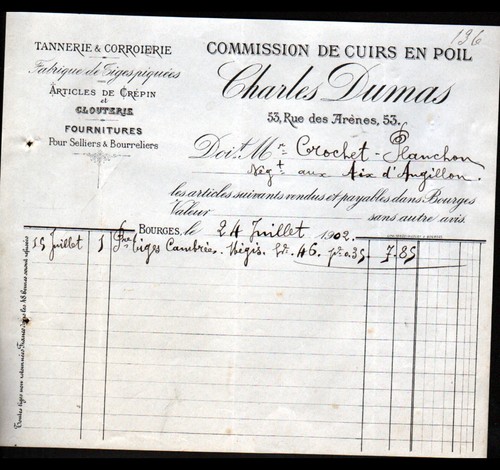 136
TANNERIE & CORROIERIE
Fabrique de Tiges piquées
ARTICLES DE CRÉPIN
et
CLOUTERIE
FOURNITURES
Pour Selliers & Bourreliers
COMMISSION DE CUIRS EN POIL
Charles Dumas
53, Rue des Arènes, 53.
Doit Mr Crochet-Planchon
Négt aux Aix d'Angillon.
les articles suivants vendus et payables dans Bourges
Valeur sans autre avis.
BOURGES, le 24 Juillet 1902.
15 Juillet 1 Pre tiges Cambrée. Mégis. 46. 7.85
Toutes tiges non retournées franco dans les 48 heures seront refusées